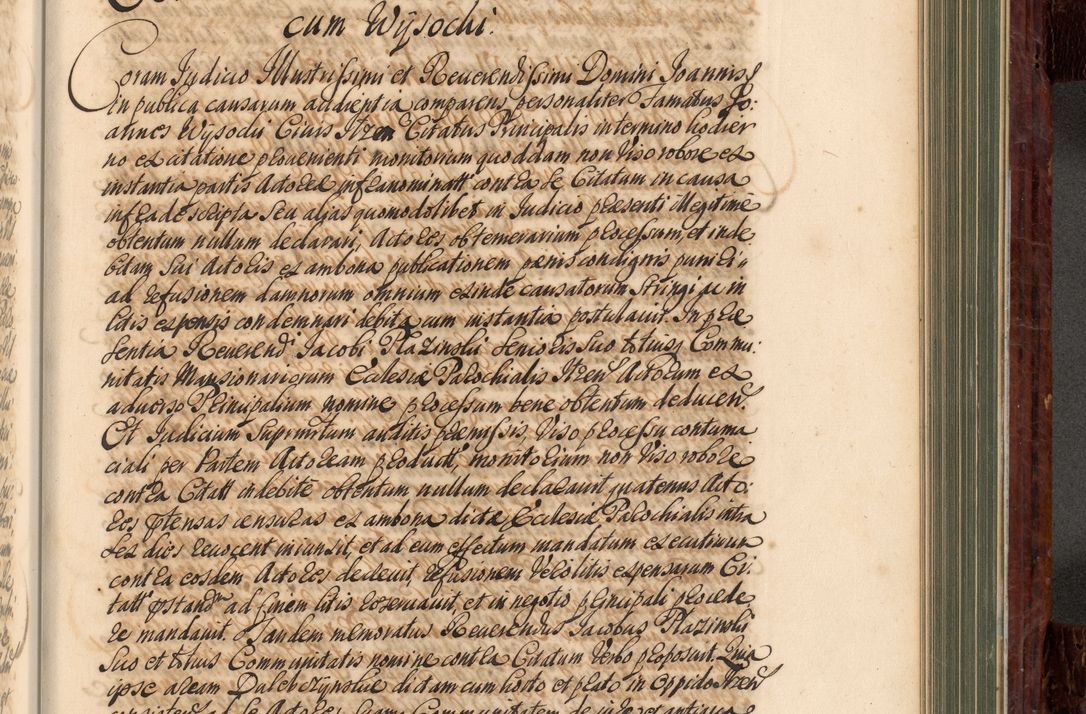 cum Wysochi.
Coram Judicio Illustrissimi et Reuerendissimi Domini Joannis
in publica causarum audientia comparens personaliter Famatus Jo:
annes Wysochi Ciuis Ilzen Citatus Principalis in termino hodier
no ex citatione proueniente monitorium quoddam non viso robore ex
instantia partis Actoreæ infranominatt contra se Citatum in causa
infradescripta seu alias quomodolibet in Judicio præsenti illegitime
obtentum nullum declarari, Actores ob temerarium processum, et inde
bitam sui Actoris ex ambona publicationem pœnis condignis puniri,
ad refusionem damnorum omnium exinde causatorum stringi ac in
litis expensis condemnari debita cum instantia postulauit. In præ
sentia Reuerendi Jacobi Plazinski senioris suo totiusq Commu:
nitatis Mansionariorum Ecclesiæ Parochialis Ilzen Actorum ex
aduerso Principalium nomine processum bene obtentum deducen.
Et Judicium Supremum auditis præmissis, viso processu contuma
ciali per Partem Actoream productt, monitorium non viso robore
contra Citatt indebite obtentum nullum declarauit, quatenus Acto:
res prætensas censuras ex ambona dictæ Ecclesiæ Parochialis intra
sex dies reuocent iniunsit, et ad eum effectum mandatum executiuum
contra eosdem Actores decreuit, refusionem vero litis expensarum Ci:
tatt præstand ad finem litis reseruauit, et in negotio principali procede
re mandauit. Tandem memoratus Reuerendus Jacobus Plazinski
suo et totius Communitatis nomine contra Citatum verbo proposuit. Quia
ipse aream Dulebczynskie dictam cum horto et prato in oppido Ilzen
consisten ad se Actores suamq Communitatem de iure et antiqua